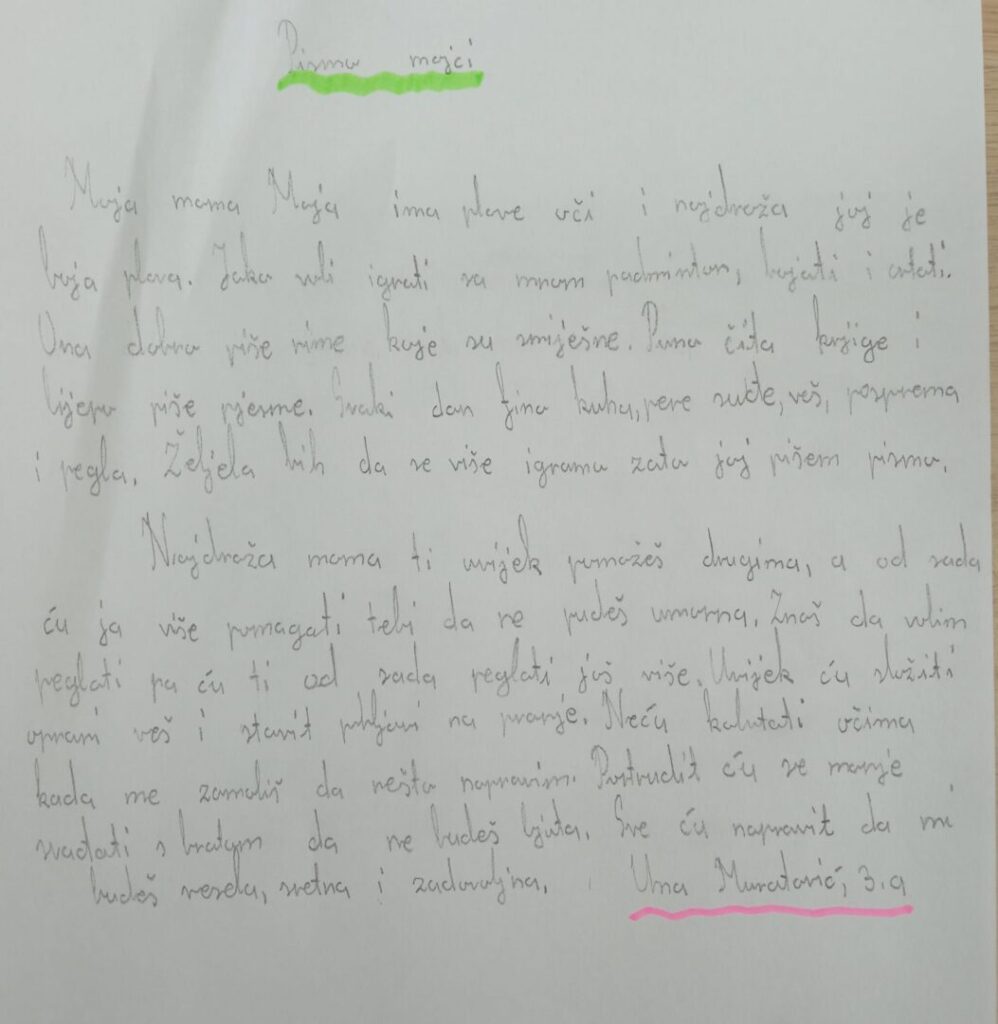 Pismo majci
Moja mama Maja ima plave oči i najdraža joj je
boja plava. Jako voli igrati sa mnom padminton, bojati i crtati.
Ona dobro piše rime koje su smiješne. Puno čita knjige i
lijepo piše pjesme. Svaki dan fino kuha, pere suđe, veš, posprema
i pegla. Željela bih da se više igramo zato joj pišem pismo.
Najdraža mama ti uvijek pomažeš drugima, a od sada
ću ja više pomagati tebi da ne pudeš umorna. Znaš da volim
peglati pa ću ti od sada peglati još više. Uvijek ću složiti
oprani veš i stavit prljavi na pranje. Neću kolutati očima
kada me zamoliš da nešto napravim. Potrudit ću se manje
svađati s bratom da ne budeš ljuta. Sve ću napravit da mi
budeš vesela, sretna i zadovoljna. Una Muratović, 3.a